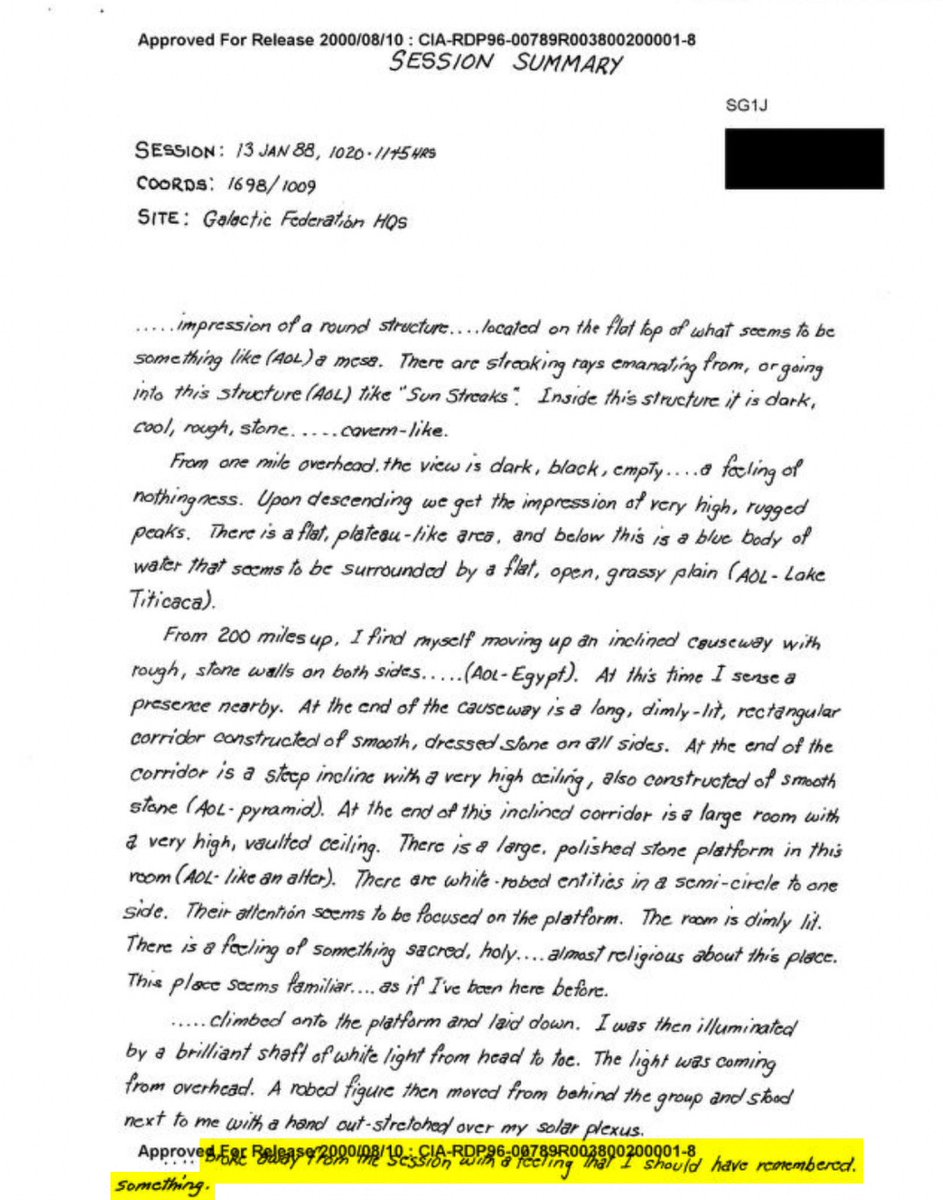 Approved For Release 2000/08/10 : CIA-RDP96-00789R003800200001-8
SESSION SUMMARY
SG1J
SESSION: 13 JAN 88, 1020-1145 HRS
COORDS: 1698/1009
SITE: Galactic Federation HQS
.....impression of a round structure....located on the flat top of what seems to be
something like (AOL) a mesa. There are streaking rays emanating from, or going
into this structure (AOL) like "Sun Streaks". Inside this structure it is dark,
cool, rough, stone.....cavern-like.
From one mile overhead, the view is dark, black, empty....a feeling of
nothingness. Upon descending we get the impression of very high, rugged
peaks. There is a flat, plateau-like area, and below this is a blue body of
water that seems to be surrounded by a flat, open, grassy plain (AOL- Lake
Titicaca).
From 200 miles up, I find myself moving up an inclined causeway with
rough, stone walls on both sides.....(AOL-Egypt). At this time I sense a
presence nearby. At the end of the causeway is a long, dimly-lit, rectangular
corridor constructed of smooth, dressed stone on all sides. At the end of the
corridor is a steep incline with a very high ceiling, also constructed of smooth
stone (AOL- pyramid). At the end of this inclined corridor is a large room with
a very high, vaulted ceiling. There is a large, polished stone platform in this
room (AOL- like an alter). There are white-robed entities in a semi-circle to one
side. Their attention seems to be focused on the platform. The room is dimly lit.
There is a feeling of something sacred, holy....almost religious about this place.
This place seems familiar....as if I've been here before.
.....climbed onto the platform and laid down. I was then illuminated
by a brilliant shaft of white light from head to toe. The light was coming
from overhead. A robed figure then moved from behind the group and stood
next to me with a hand out-stretched over my solar plexus.
Approved For Release 2000/08/10 : CIA-RDP96-00789R003800200001-8
....broke away from the session with a feeling that I should have remembered
something.